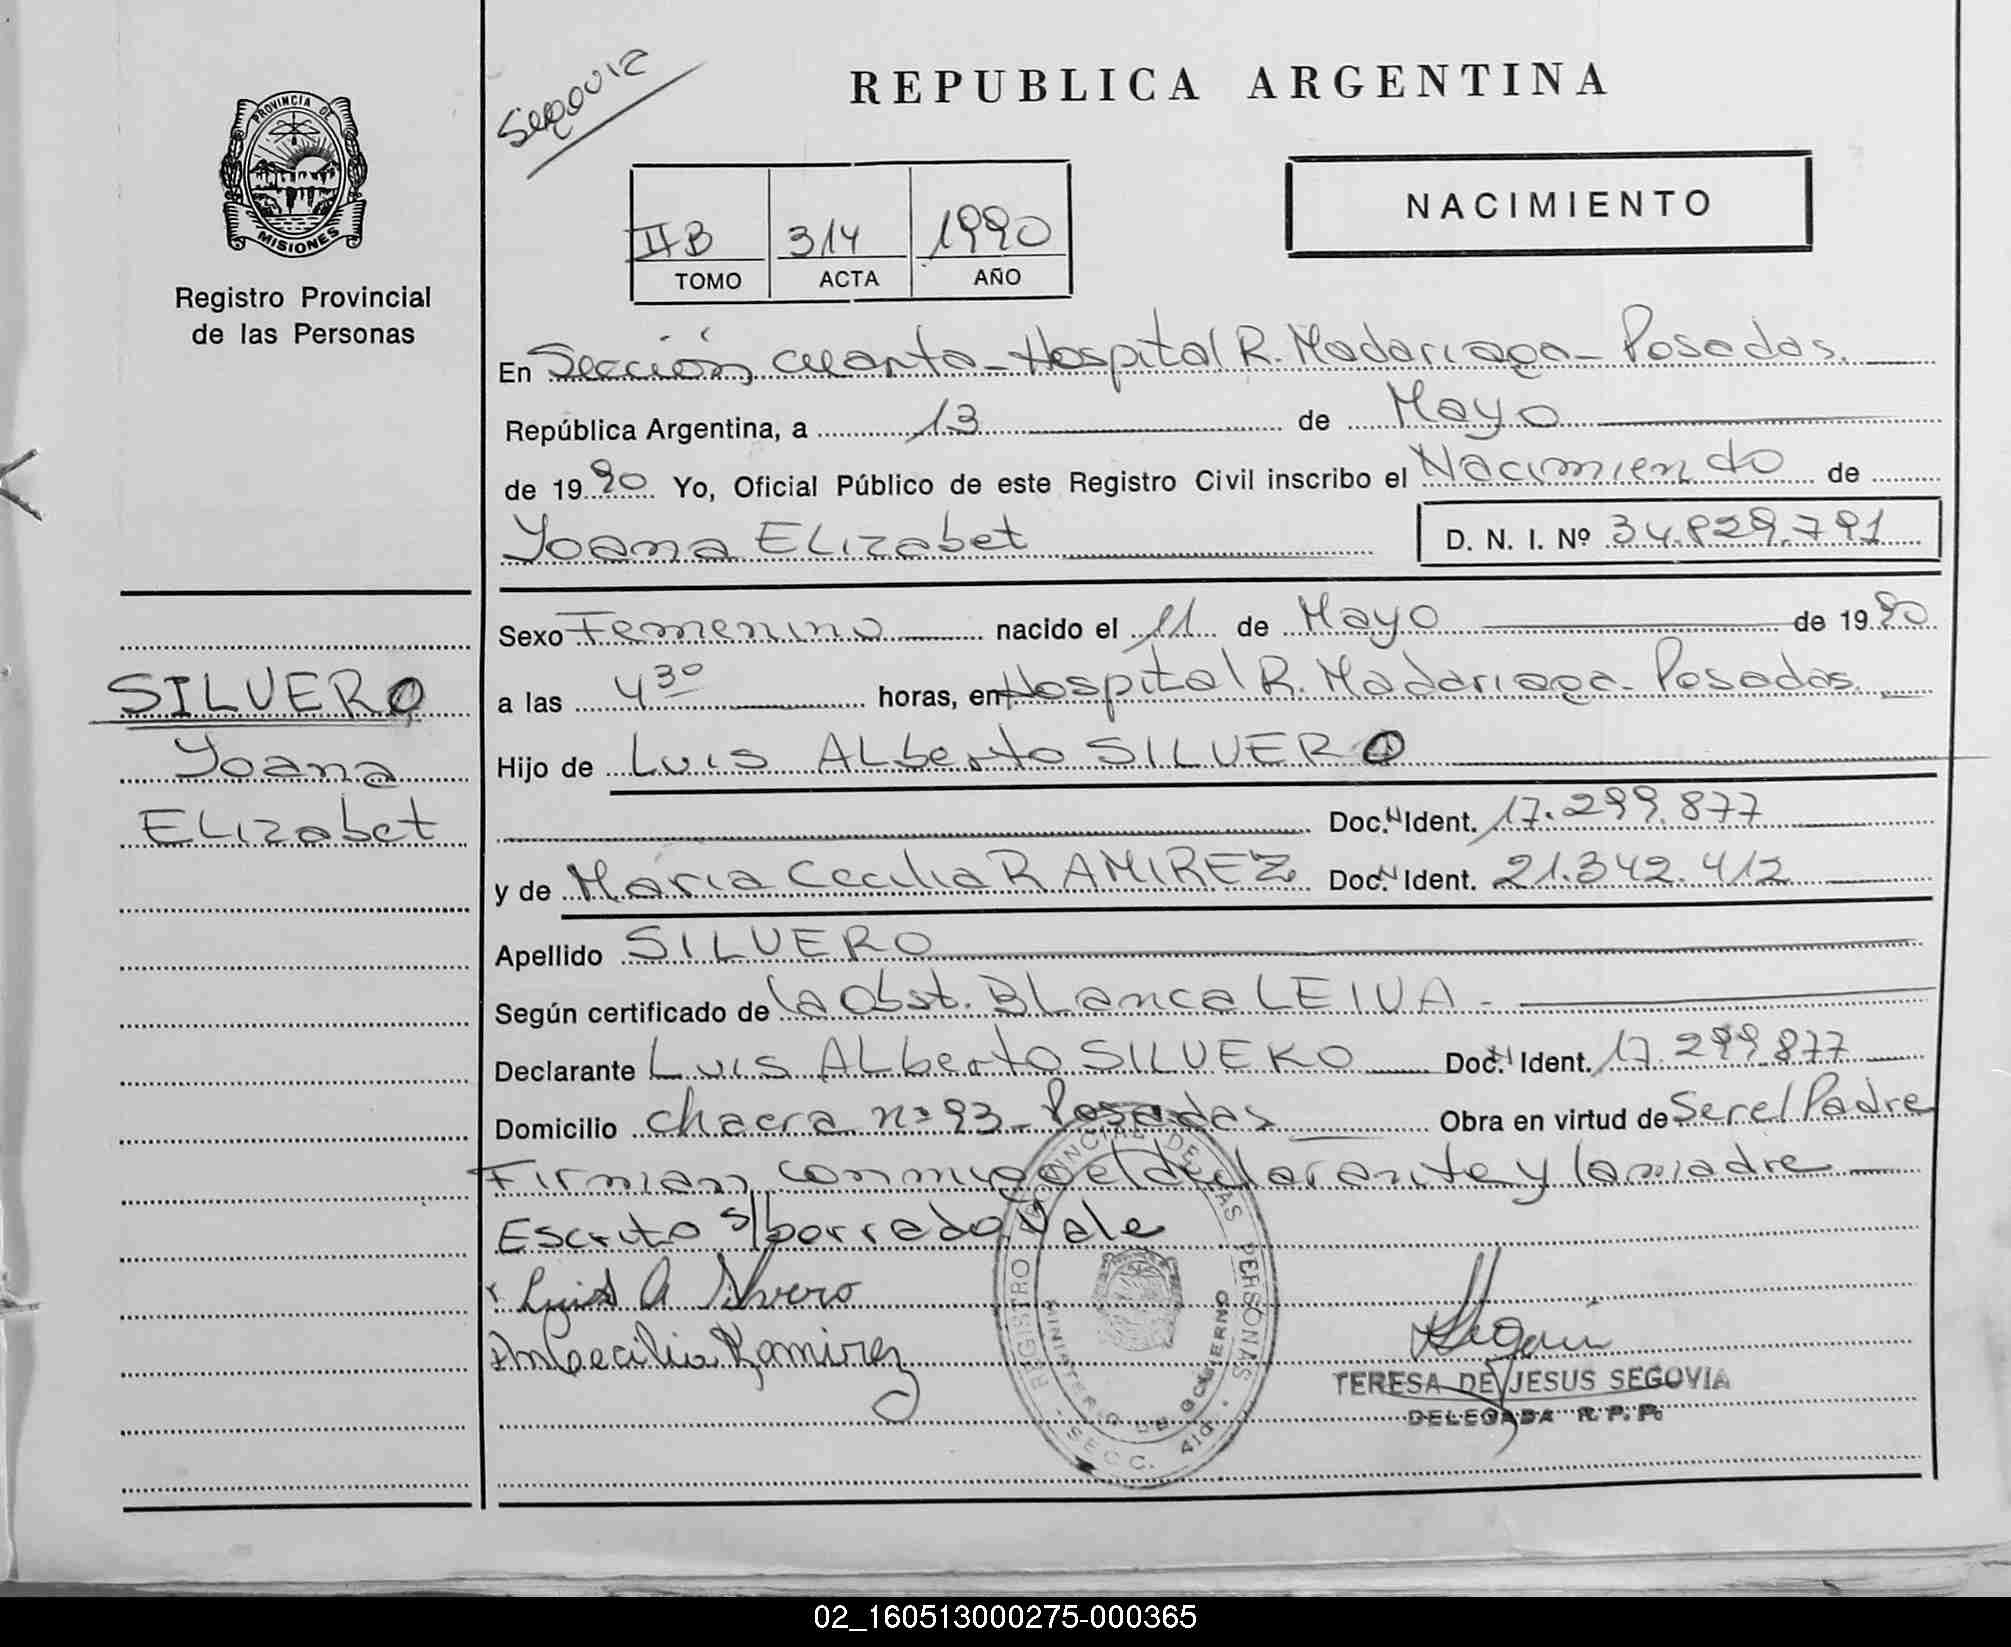 Segovia
REPUBLICA ARGENTINA
PROVINCIA DE
MISIONES
Registro Provincial
de las Personas
II B 314 1990
TOMO ACTA AÑO
NACIMIENTO
En Sección cuarta - Hospital R. Madariaga - Posadas.
República Argentina, a 13 de Mayo
de 1990 Yo, Oficial Público de este Registro Civil inscribo el Nacimiento de
Yoana ELizabet D. N. I. Nº 34.829.791
Sexo Femenino nacido el 11 de Mayo de 1990
a las 4 30 horas, en Hospital R. Madariaga - Posadas.
SILVERO
Yoana
ELizabet
Hijo de Luis ALberto SILVERO
Doc. N Ident. 17.299.877
y de María Cecilia RAMIREZ Doc. N Ident. 21.342.412
Apellido SILVERO
Según certificado de la Obst. BLanca LEIVA -
Declarante Luis ALberto SILVERO Doc. N Ident. 17.299.877
Domicilio chacra nº 93 - Posadas Obra en virtud de Ser el Padre
Firman conmigo el declarante y la madre
Escrito s/borrado Vale
Luis A Silvero
M Caecilia Ramirez
REGISTRO PROVINCIAL DE LAS PERSONAS
MINISTERIO DE GOBIERNO
- SECC. 4ta. -
TERESA DE JESUS SEGOVIA
DELEGADA R. P. P.
02_160513000275-000365